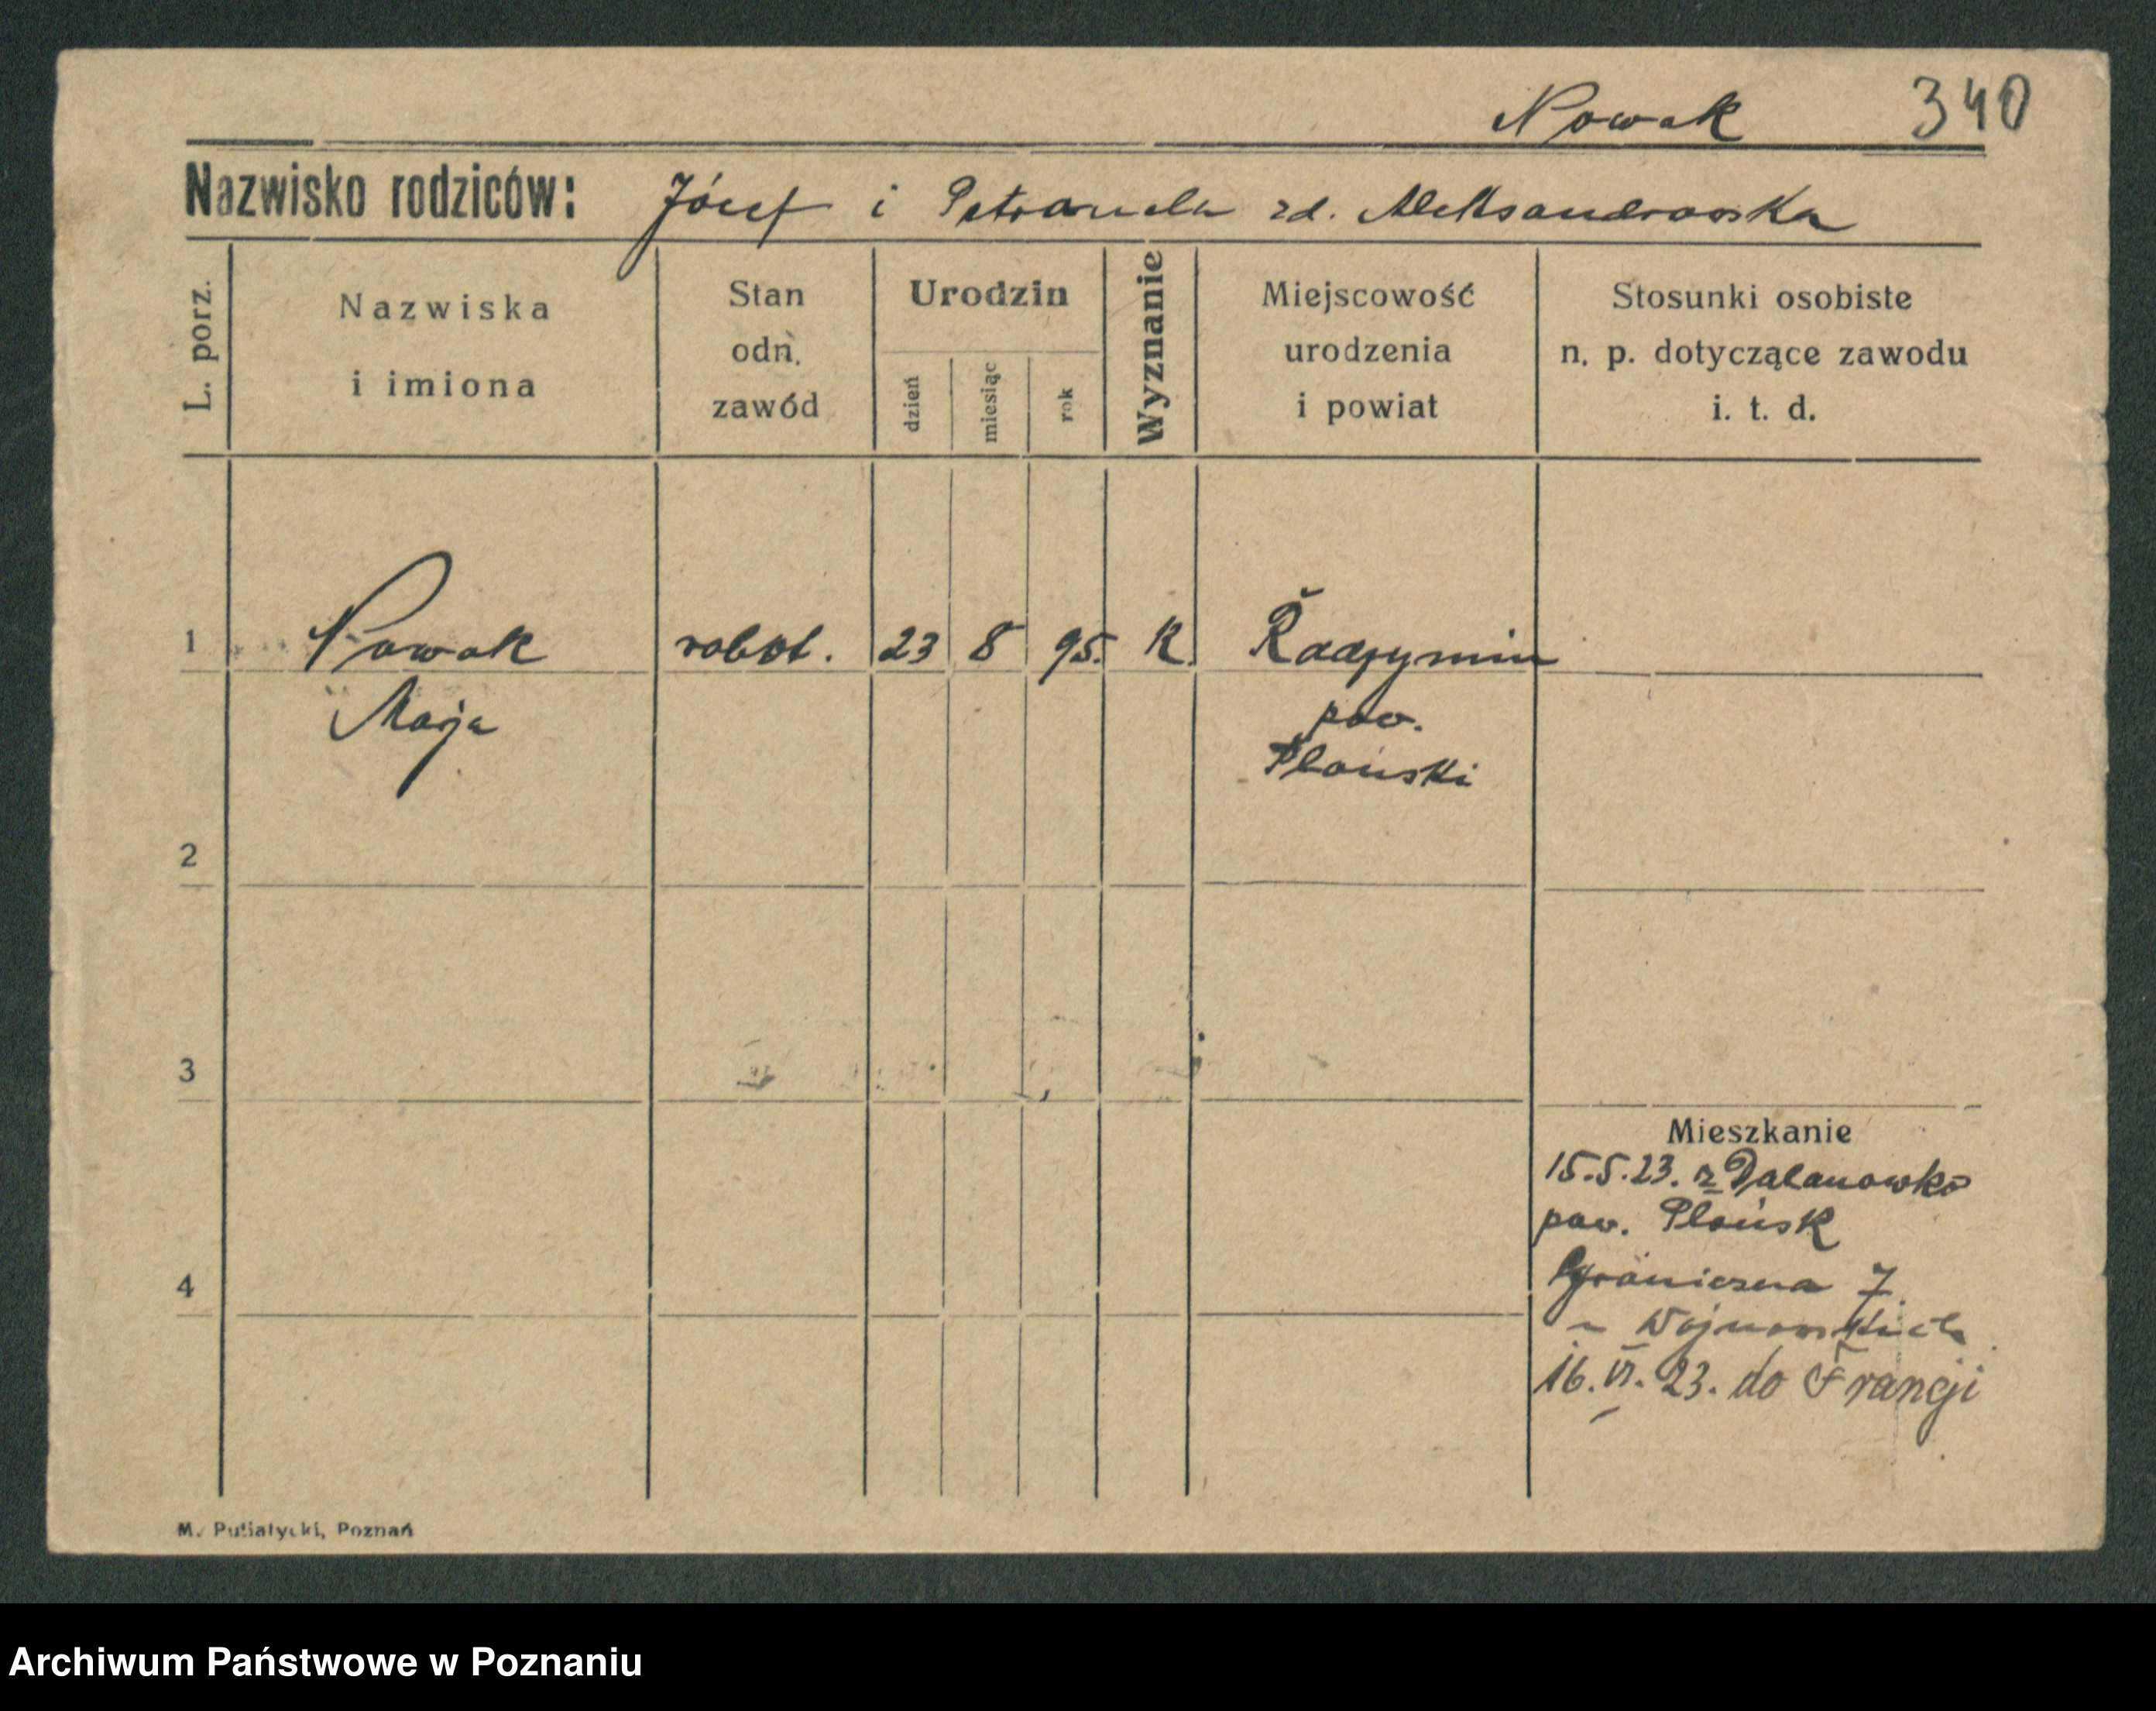 Nowak 340
Nazwisko rodziców: Józef i Petronela zd. Aleksandrowska
L. porz.
Nazwiska
i imiona
Stan
odn.
zawód
Urodzin
dzień
miesiąc
rok
Wyznanie
Miejscowość
urodzenia
i powiat
Stosunki osobiste
n. p. dotyczące zawodu
i. t. d.
1 Nowak robot. 23 8 95. K. Radzymin
Marja pow.
Płoński
2
3
Mieszkanie
15.5.23. z Dalanowko
pow. Płońsk
4 Graniczna 7
u Wojnowskich
16.VI.23. do Francji
M. Putiatycki, Poznań
Archiwum Państwowe w Poznaniu